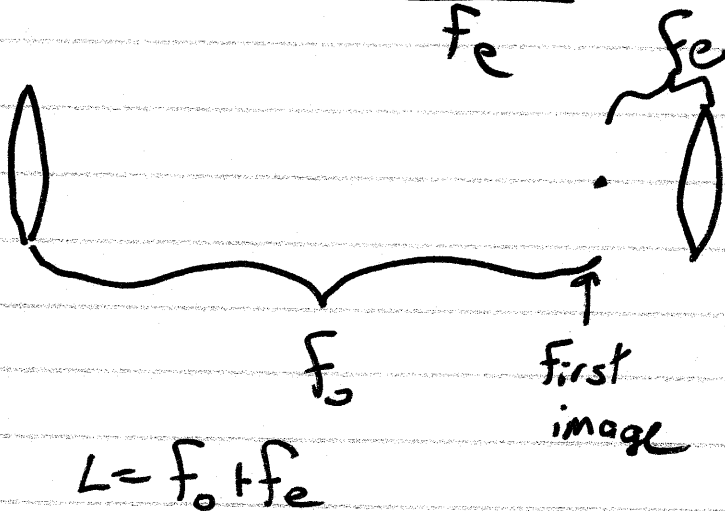 fe
fe
fo
first
image
L = fo + fe